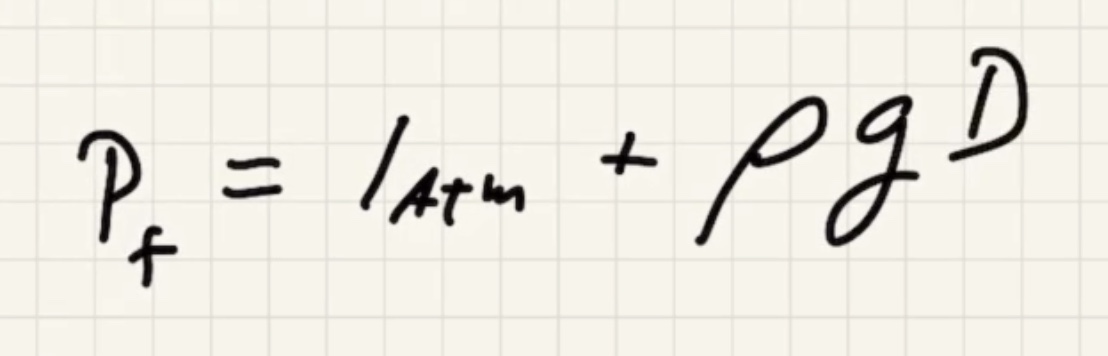 P_f = 1 Atm + ρgD